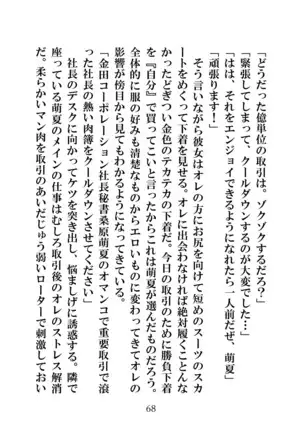 「どうだった億単位の取引は。ゾクゾクするだろ？」
「緊張してしまって、クールダウンするのが大変でした…」
「はは、それをエンジョイできるようになれたら一人前だぜ、萌夏」
「頑張ります！」
　そう言いながら彼女はオレの方にお尻を向けて短めのスーツのスカ
ートをめくって下着を見せる。オレに出会わなければ絶対履くことんな
かったどぎつい金色のテカテカの下着だ。今日の取引のために勝負下着
を『自分』で買ってこいと言ったからこれは萌夏が選んだものだろう。
全体的に服の好みも清楚なものからエロいものに変わってきてオレの
影響が傍目から見てもわかるようになってきている。
「金田コーポレーション社長秘書桑原萌夏のオマンコで重要取引で滾
った社長の熱い肉簿をクールダウンさせてください」
　社長のデスクに向かってケツを突き出し、悩ましげに誘惑する。隣で
座っている萌夏のメインの仕事はむしろ取引後のオレのストレス解消
だ。柔らかいマン肉を取引のあいだじゅう弱いローターで刺激しておい
68